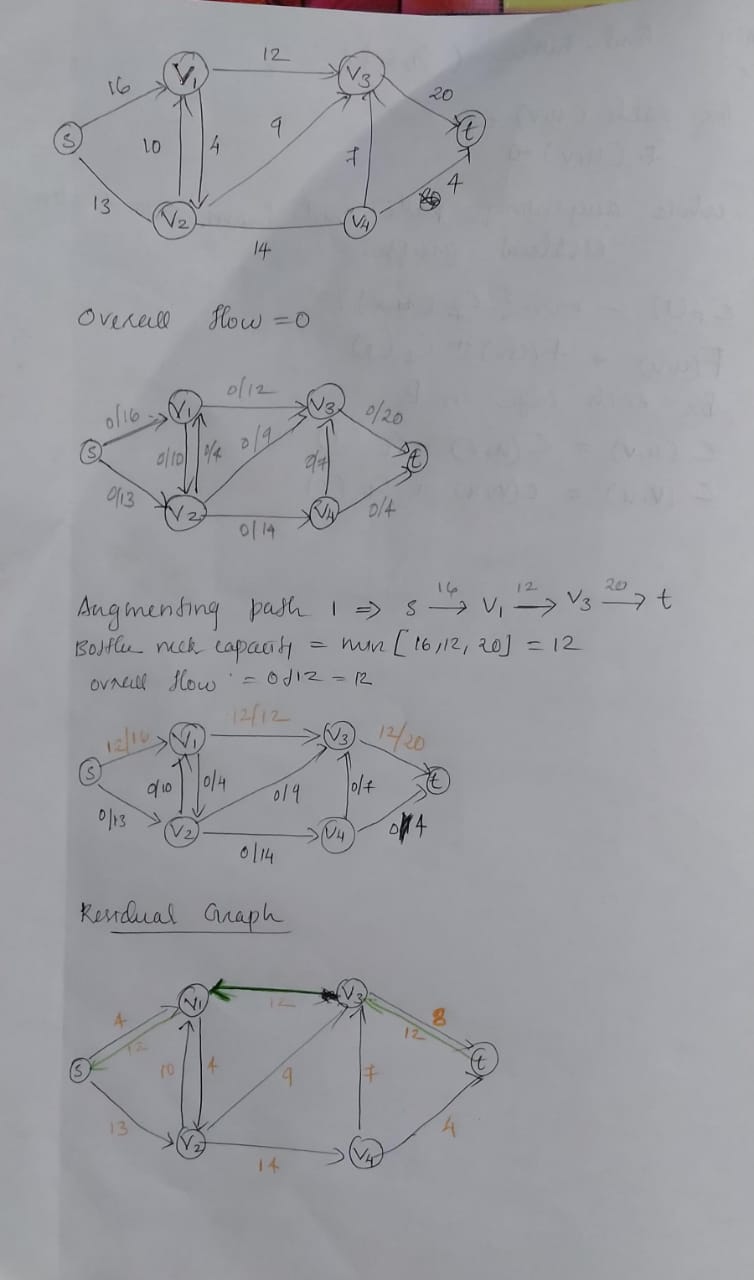 12
16
V1
V3
20
S
10
4
9
7
t
4
13
V2
V4
14
Overall flow = 0
0/12
V1
V3
0/16
0/20
S
0/10
0/4
0/9
0/7
t
0/13
V2
V4
0/4
0/14
Augmenting path 1 ⇒ S —16→ V1 —12→ V3 —20→ t
Bottle neck capacity = min [16,12, 20] = 12
overall flow = 0+12 = 12
12/12
12/16
V1
V3
12/20
S
0/10
0/4
0/9
0/7
t
0/13
V2
V4
0/4
0/14
Residual Graph
V1
V3
12
4
12
8
12
S
10
4
9
7
t
13
V2
V4
4
14